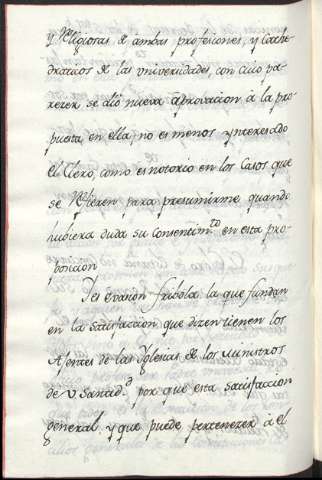 y Religiosas de ambas profesiones, y Cathe
draticos de las universidades, con cuio pa
rezer se dió nueva aprovacion à la pro
puesta, en ella, no es menos ynteresado
el Clero, como es notorio en los Casos que
se Refieren para presumirme quando
hubiera duda su Consentim.to en esta pro
posicion
Y es evasion fribola la que fundan
en la satisfaccion que dizen tienen los
Ajentes de las Yglesias de los ministros
de V Santid.d por que esta satisfaccion
general, y que puede pertenezer à el